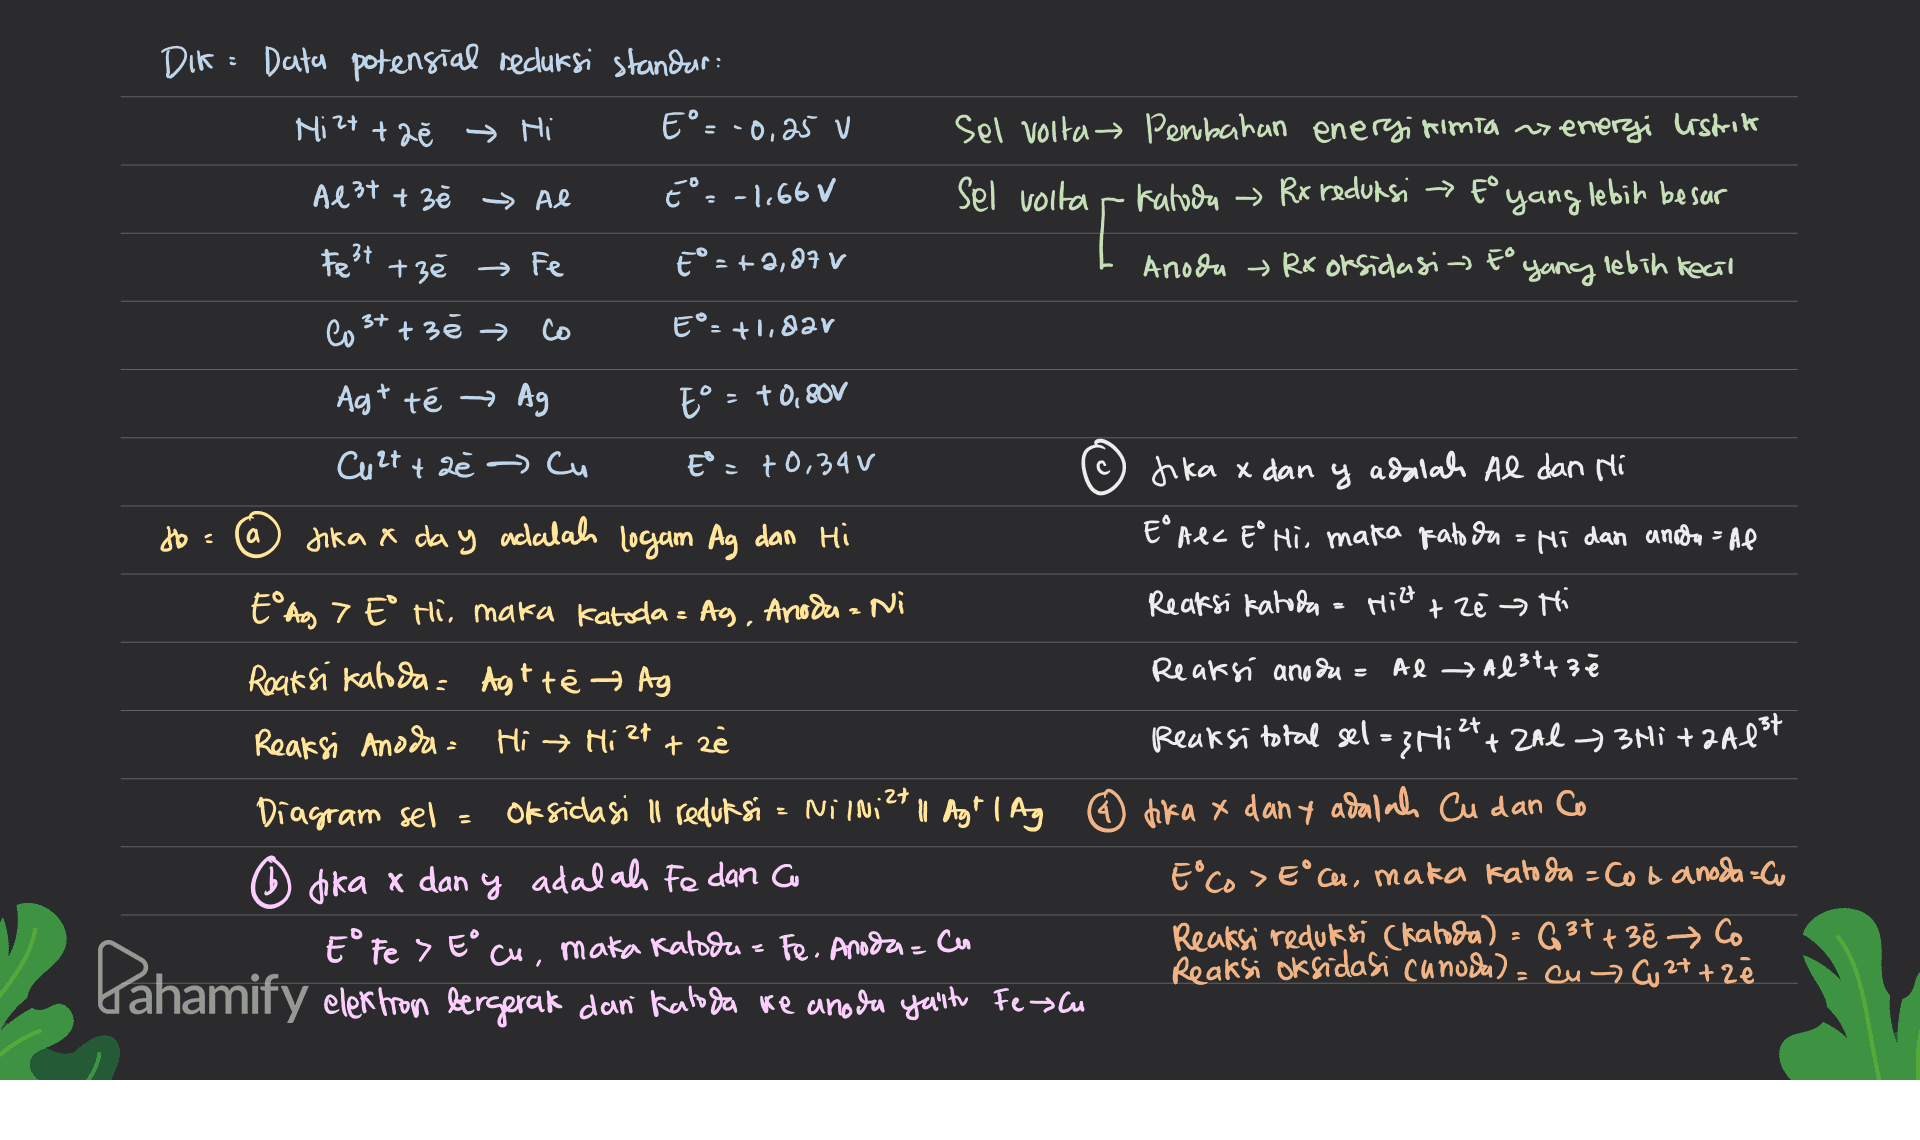 Dik = Data potensial reduksi standar:
Ni²⁺ + 2ē → Ni E° = -0,25 V
Al³⁺ + 3ē → Al E° = -1,66 V
Fe³⁺ + 3ē → Fe E° = +2,87 V
Co³⁺ + 3ē → Co E° = +1,82 V
Ag⁺ + ē → Ag E° = +0,80 V
Cu²⁺ + 2ē → Cu E° = +0,34 V
Sel Volta → Perubahan energi kimia ⇝ energi listrik
Sel volta Katoda → Rx reduksi → E° yang lebih besar
Anoda → Rx oksidasi → E° yang lebih kecil
Jb = (a) Jika x da y adalah logam Ag dan Ni
E° Ag > E° Ni, maka Katoda = Ag, Anoda = Ni
Reaksi Katoda = Ag⁺ + ē → Ag
Reaksi Anoda = Ni → Ni²⁺ + 2ē
Diagram sel = Oksidasi || reduksi = Ni | Ni²⁺ || Ag⁺ | Ag
(b) Jika x dan y adalah Fe dan Cu
E° Fe > E° Cu, maka Katoda = Fe. Anoda = Cu
elektron bergerak dari katoda ke anoda yaitu Fe → Cu
(c) Jika x dan y adalah Al dan Ni
E° Al < E° Ni, maka katoda = Ni dan anoda = Al
Reaksi katoda = Ni²⁺ + 2ē → Ni
Reaksi anoda = Al → Al³⁺ + 3ē
Reaksi total sel = 3Ni²⁺ + 2Al → 3Ni + 2Al³⁺
(d) Jika x dan y adalah Cu dan Co
E° Co > E° Cu, maka katoda = Co & anoda = Cu
Reaksi reduksi (katoda) = Co³⁺ + 3ē → Co
Reaksi oksidasi (anoda) = Cu → Cu²⁺ + 2ē
Pahamify